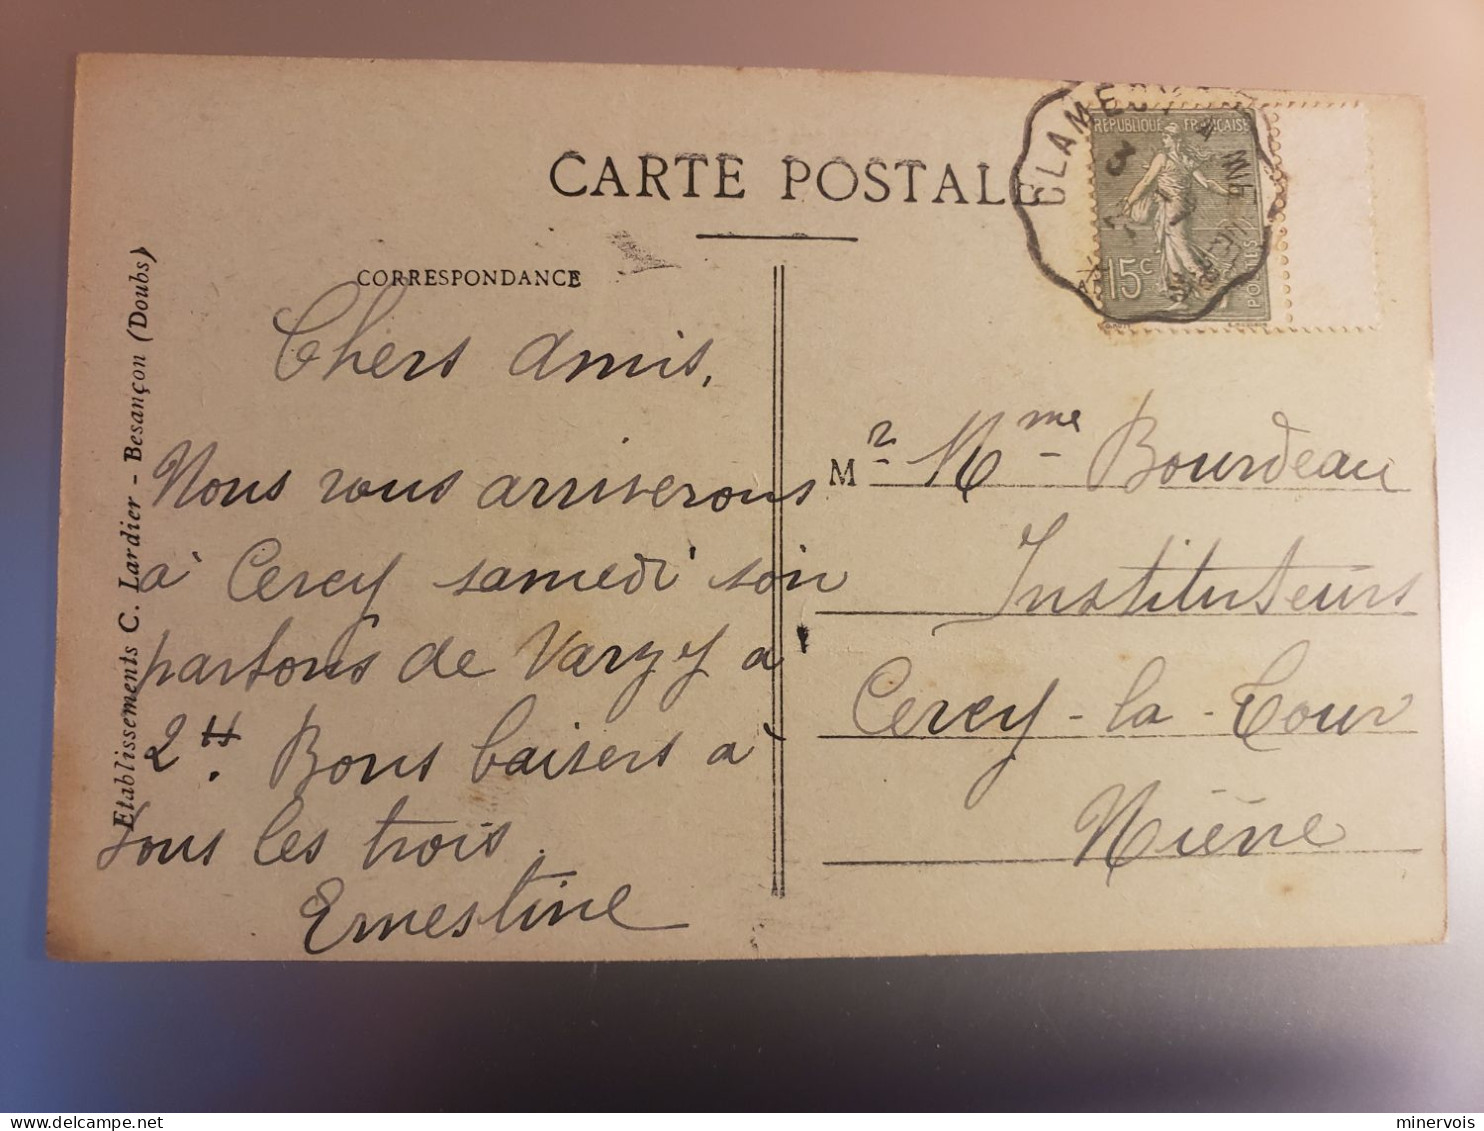 CARTE POSTALE
CORRESPONDANCE
Etablissements C. Lardier - Besançon (Doubs)
Chers amis,
Nous vous arriverons
à Cercy samedi soir
partons de Varzy à
2 H. Bons baisers à
tous les trois.
Ernestine
CLAMECY A
3
REPUBLIQUE FRANÇAISE
15c
POSTES
Mr Mme Bourdeau
Instituteurs
Cercy-la-Tour
Nièvre
minervois